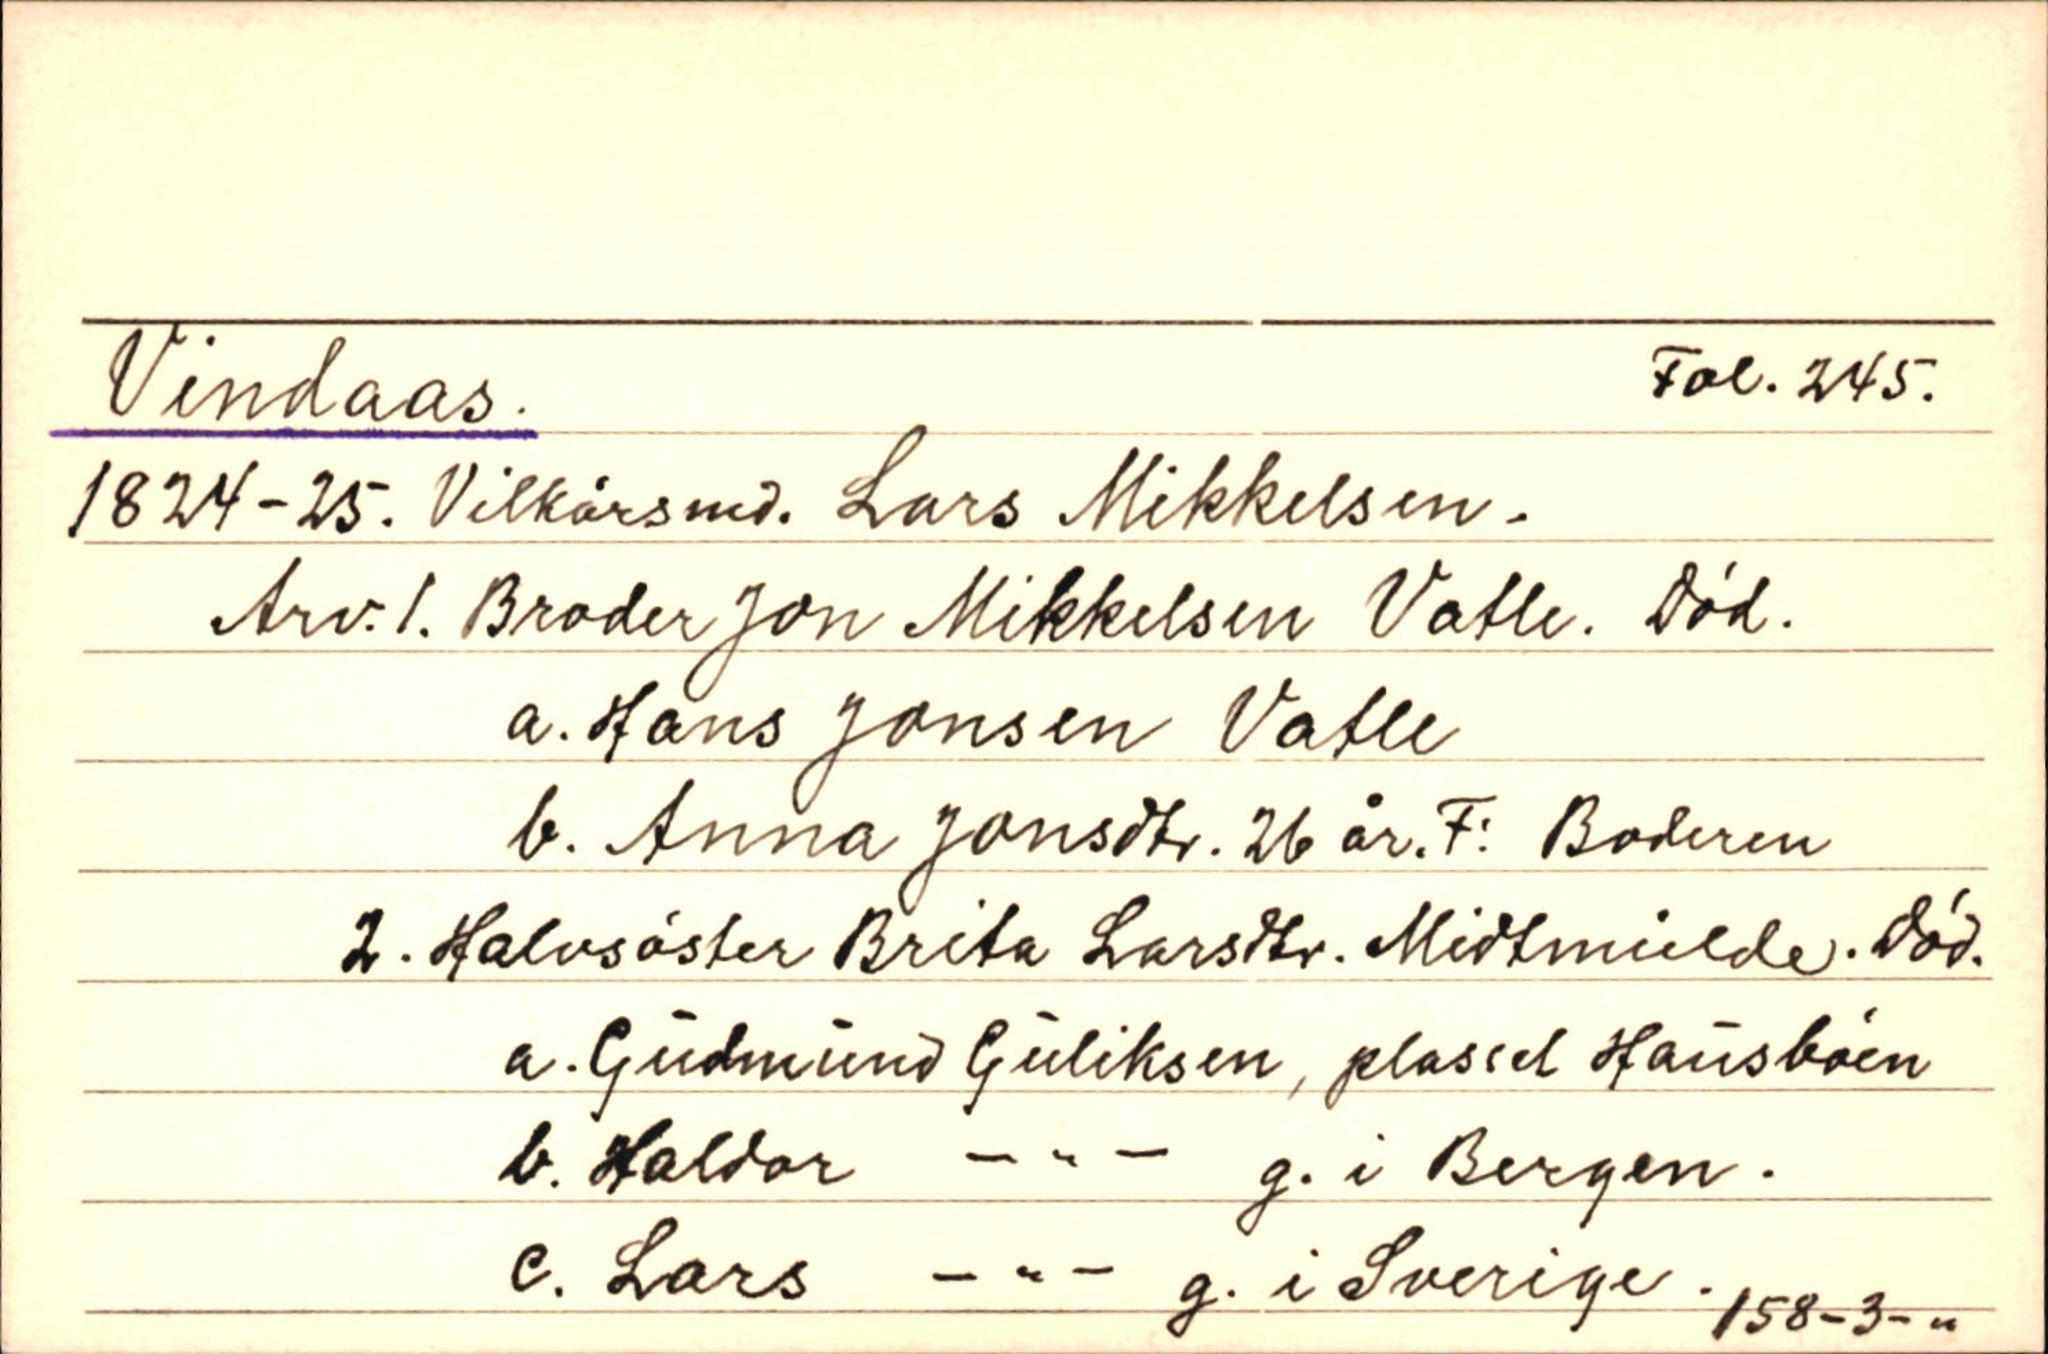 Vindaas. Fol. 245.
1824-25. Vilkårsmd. Lars Mikkelsen.
Arv. 1. Broder Jon Mikkelsen Vatle. Död.
a. Hans Jonsen Vatle
b. Anna Jonsdtr. 26 år. F: Boderen
2. Halvsöster Brita Larsdtr. Midtmulde. Död.
a. Gudmund Guliksen, plassel Hausböen
b. Haldor - " - g. i Bergen.
c. Lars - " - g. i Sverige.
158-3-"